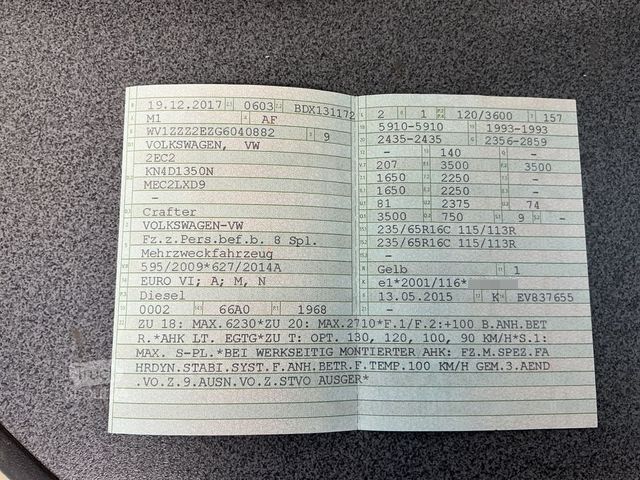 19.12.2017 0603 BDX131172
M1 AF
WV1ZZZ2EZG6040882 9
VOLKSWAGEN, VW
2EC2
KN4D1350N
MEC2LXD9
-
Crafter
VOLKSWAGEN-VW
Fz.z.Pers.bef.b. 8 Spl.
Mehrzweckfahrzeug
595/2009*627/2014A
EURO VI; A; M, N
Diesel
0002 66A0 1968
2 1 120/3600 157
5910-5910 1993-1993
2435-2435 2356-2859
- 140 -
207 3500 3500
1650 2250 -
1650 2250 -
81 2375 74
3500 750 9 -
235/65R16C 115/113R
235/65R16C 115/113R
-
Gelb 1
e1*2001/116*
13.05.2015 K EV837655
ZU 18: MAX.6230*ZU 20: MAX.2710*F.1/F.2:+100 B.ANH.BET
R.*AHK LT. EGTG*ZU T: OPT. 130, 120, 100, 90 KM/H*S.1:
MAX. S-PL.*BEI WERKSEITIG MONTIERTER AHK: FZ.M.SPEZ.FA
HRDYN.STABI.SYST.F.ANH.BETR.F.TEMP.100 KM/H GEM.3.AEND
.VO.Z.9.AUSN.VO.Z.STVO AUSGER*